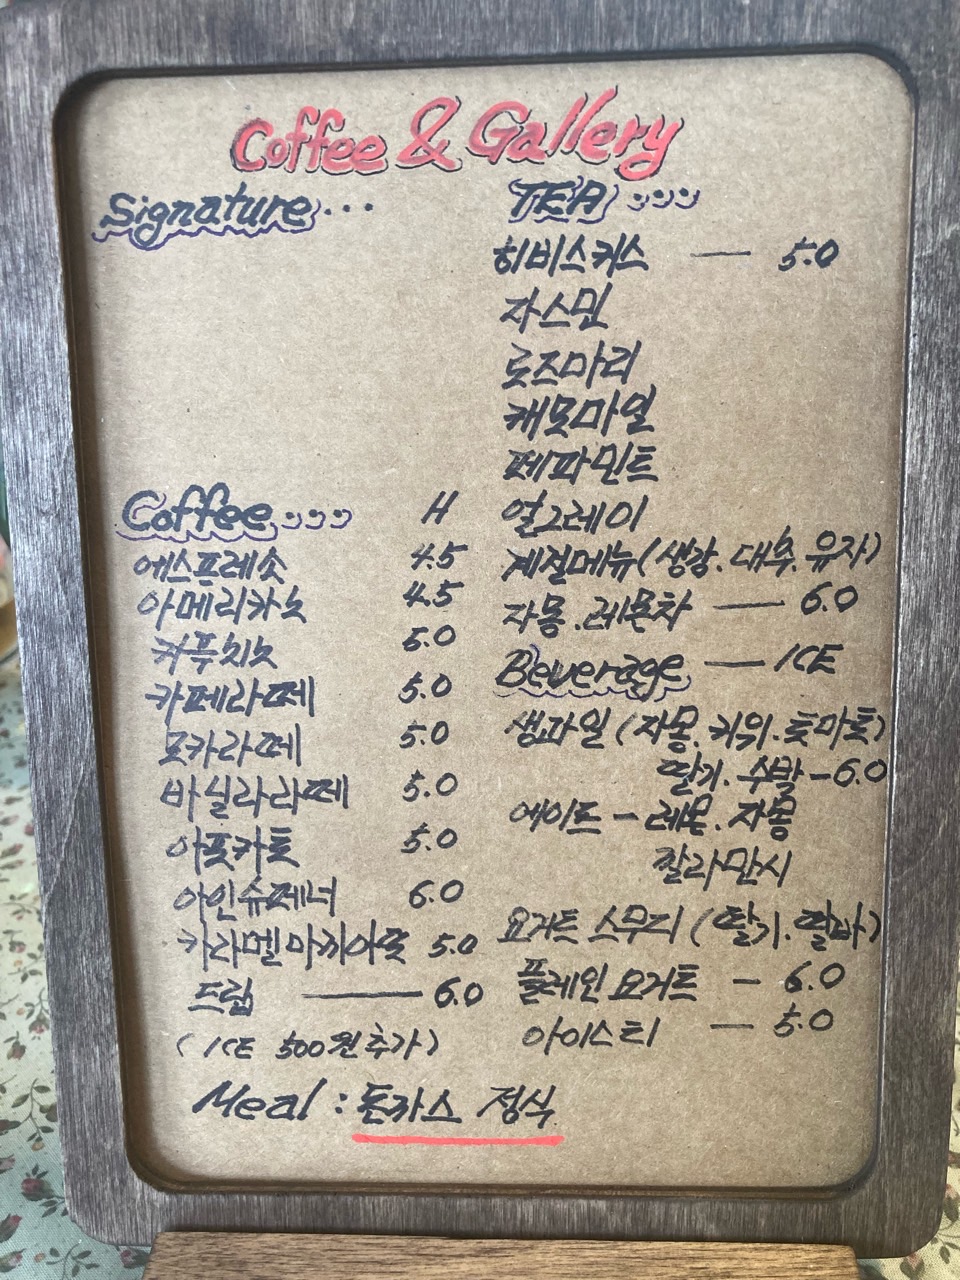 Coffee & Gallery
Signature...
Coffee.... H
에스프레소 4.5
아메리카노 4.5
카푸치노 5.0
카페라떼 5.0
모카라떼 5.0
바닐라라떼 5.0
아포카토 5.0
아인슈페너 6.0
카라멜마끼아또 5.0
드립 — 6.0
(ICE 500원 추가)
TEA....
히비스커스 — 5.0
자스민
로즈마리
캐모마일
페파민트
얼그레이
계절메뉴(생강.대추.유자)
자몽.레몬차 — 6.0
Beverage — ICE
생과일(자몽.키위.토마토)
딸기.수박-6.0
에이드-레몬.자몽
깔라만시
요거트 스무디(딸기.딸바)
플레인요거트 - 6.0
아이스티 - 5.0
Meal : 돈까스 정식